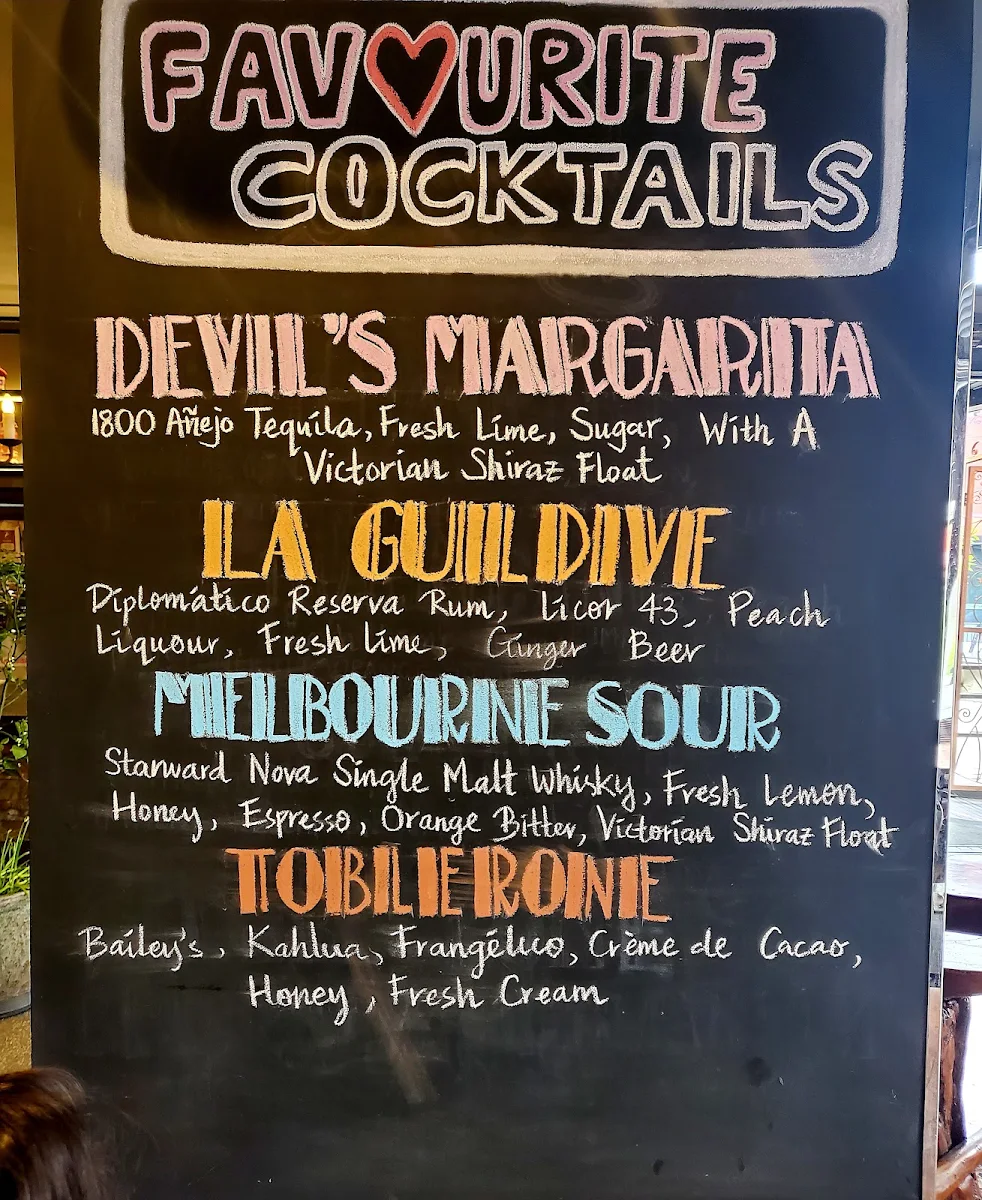 FAV♥URITE
COCKTAILS
DEVIL'S MARGARITA
1800 Añejo Tequila, Fresh Lime, Sugar, With A
Victorian Shiraz Float
LA GUILDIVE
Diplomático Reserva Rum, Licor 43, Peach
Liquour, Fresh lime, Ginger Beer
MELBOURNE SOUR
Starward Nova Single Malt Whisky, Fresh Lemon,
Honey, Espresso, Orange Bitter, Victorian Shiraz Float
TOBLERONE
Bailey's, Kahlua, Frangélico, Crème de Cacao,
Honey, Fresh Cream